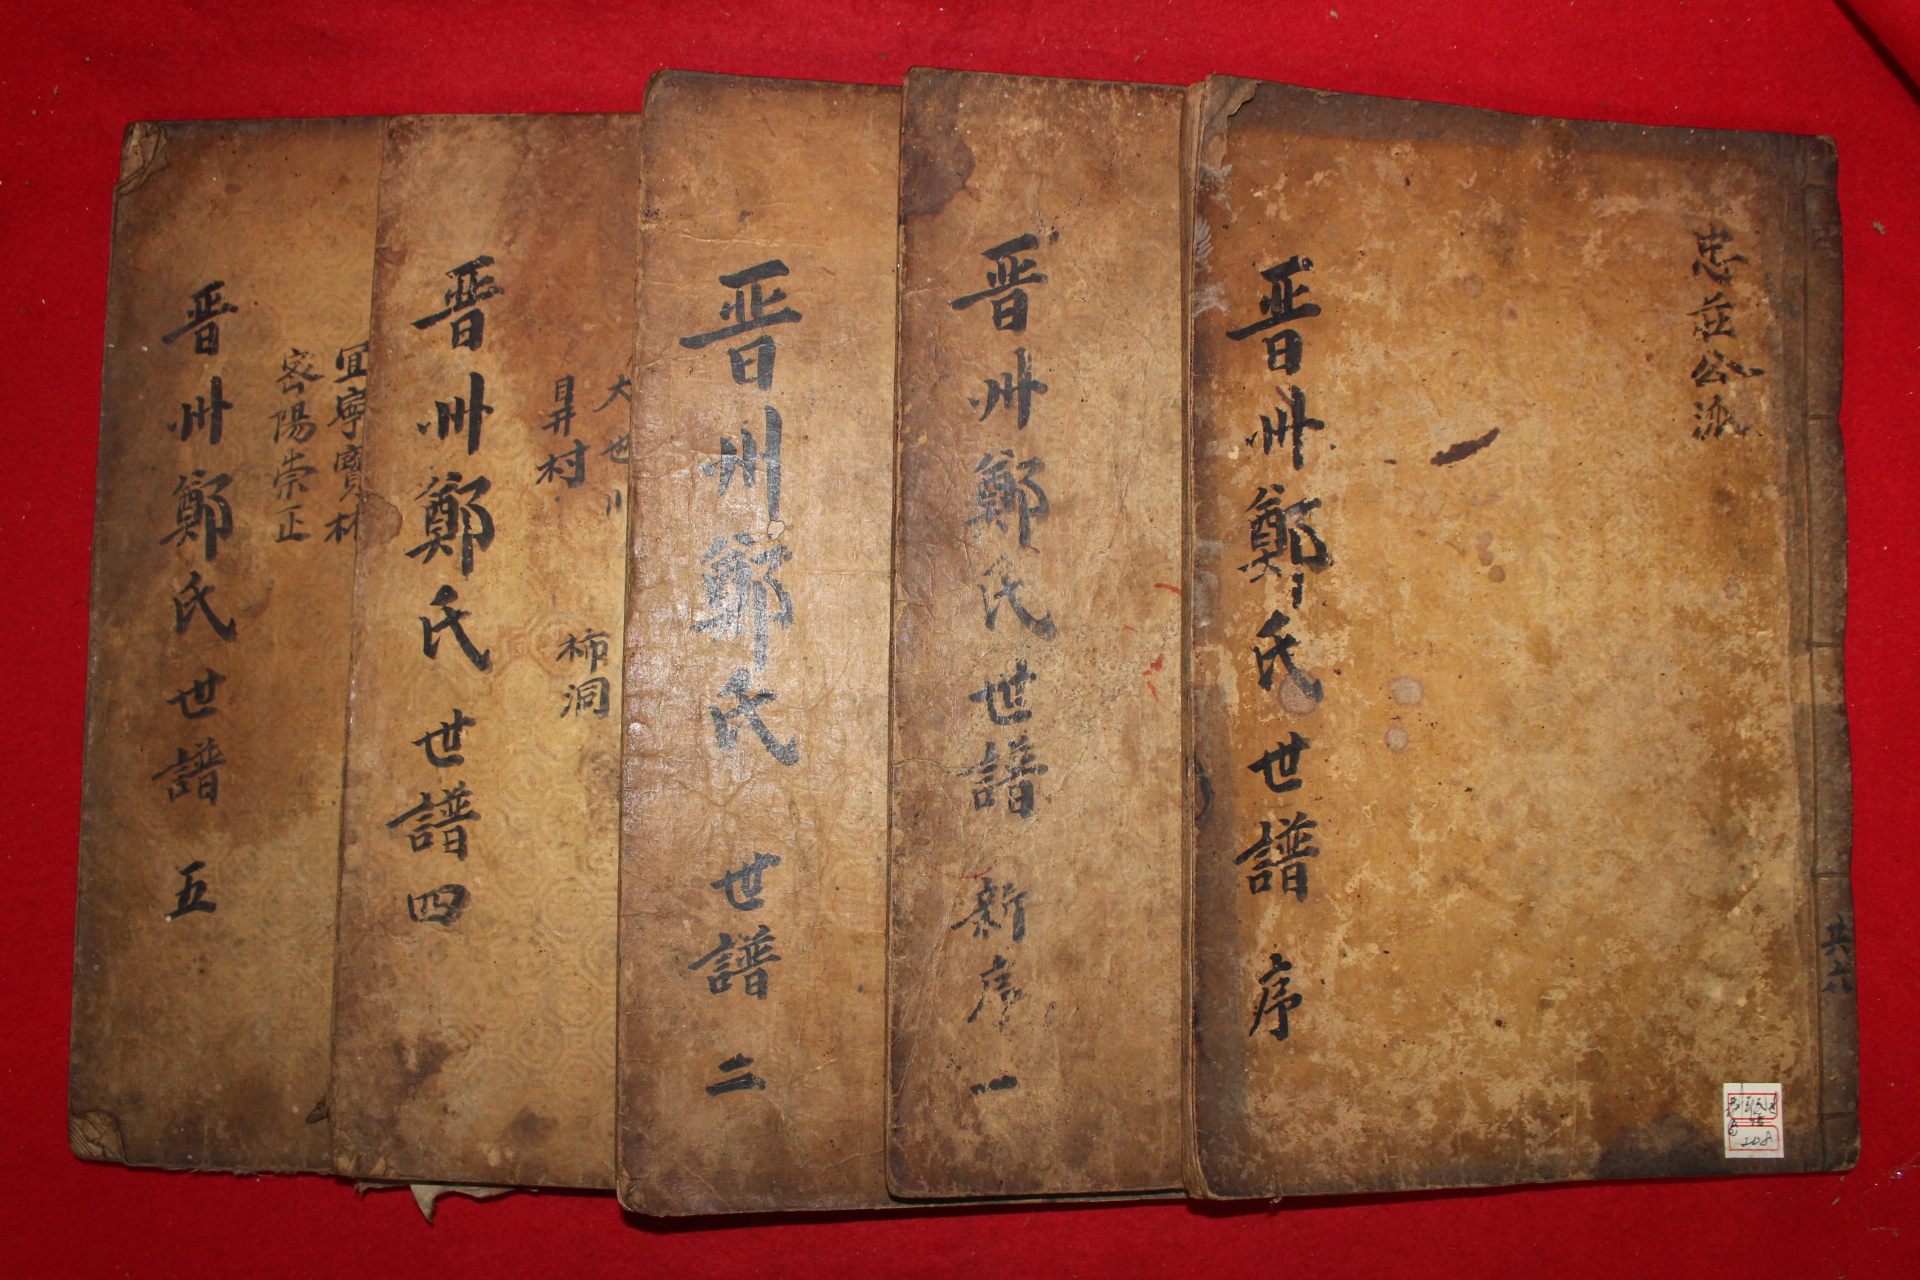 忠莊公派
晋州鄭氏世譜 序
共六
晋州鄭氏世譜 新序 一
晋州鄭氏 世譜 二
大也川
昇村
柿洞
晋州鄭氏 世譜 四
宜寧寶林
密陽崇正
晋州鄭氏世譜 五